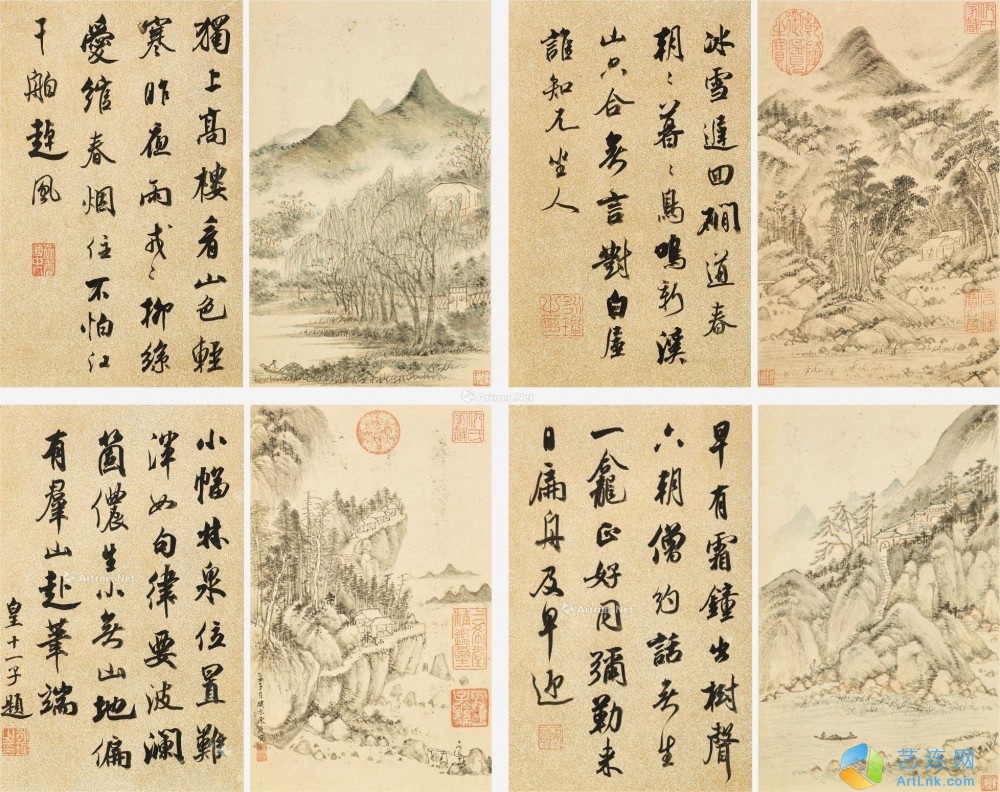 獨上高樓看山色輕
寒昨夜雨戎〻柳絲
愛綰春烟住不怕江
干舶趠風
冰雪遲回磵道春
朝〻暮〻鳥鳴新溪
山只合無言對白屋
誰知兀坐人
小幅林泉位置難
渾如句律要波瀾
箇儂生小無山地偏
有羣山赴筆端
皇十一子題
早有霜鐘出樹聲
六朝僧約話無生
一龕正好同彌勒未
日扁舟及早迎
Artron.Net
Artron.Net
Artron.Net
艺连网
ArtLnk.com